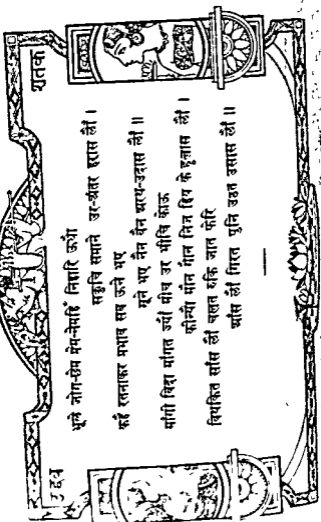 उद्धव
शतक
भूले जोग-छेम प्रेम-नेमहिं निहारि ऊधौ
सकुचि समाने उर-अंतर हरास लौं ।
कहै रतनाकर प्रभाव सब ऊने भए
सूने भए नैन बैन अरथ-उदास लौं ॥
माँगी बिदा माँगत ज्यौं मीच उर भीचि कोऊ
कीन्यौ मौन गौन निज हिय के हुलास लौं ।
बियकित साँस लौं चलत रुकि जात फेरि
आँस लौं गिरत पुनि उठत उसास लौं ॥